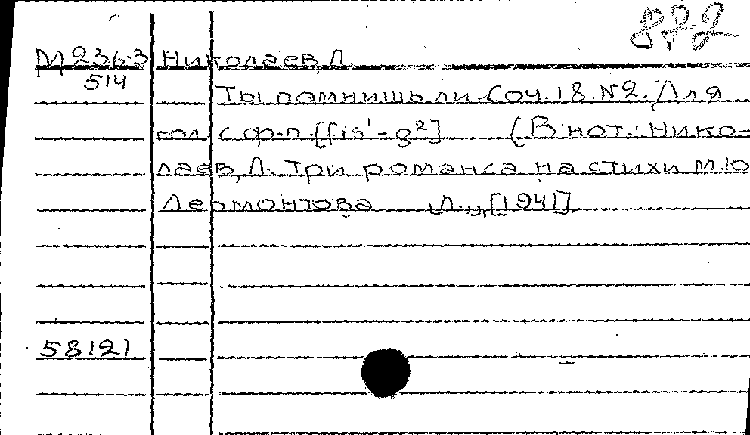 882
М 236-3 Николаев, Л.
514
Ты помнишь ли Соч. 18 №2. Для
гол. с ф-п. [fis¹-g²] (В нот.: Нико-
лаев, Л. Три романса на стихи М.Ю
Лермонтова Л., [1941].
58121